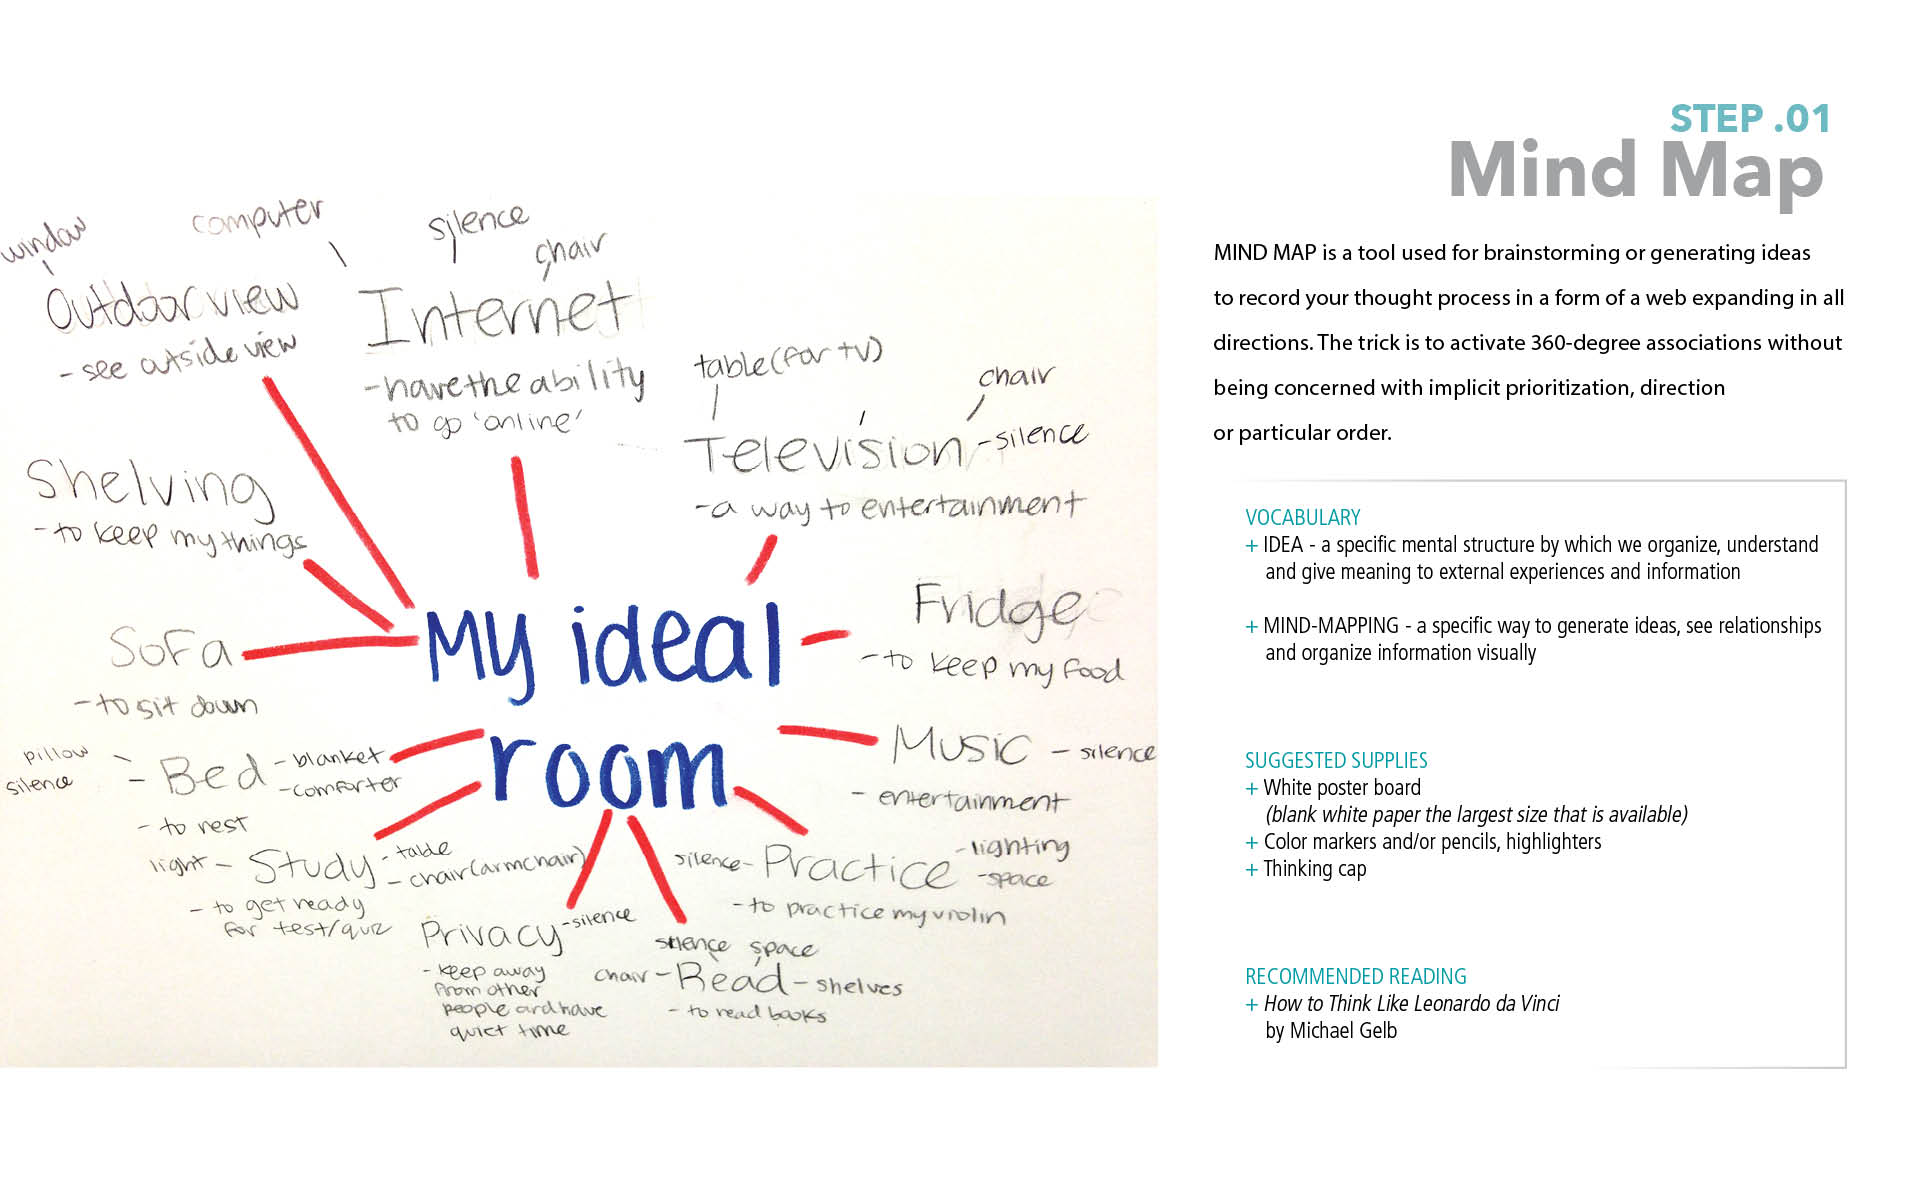 STEP .01
Mind Map
MIND MAP is a tool used for brainstorming or generating ideas
to record your thought process in a form of a web expanding in all
directions. The trick is to activate 360-degree associations without
being concerned with implicit prioritization, direction
or particular order.
VOCABULARY
+ IDEA - a specific mental structure by which we organize, understand
and give meaning to external experiences and information
+ MIND-MAPPING - a specific way to generate ideas, see relationships
and organize information visually
SUGGESTED SUPPLIES
+ White poster board
(blank white paper the largest size that is available)
+ Color markers and/or pencils, highlighters
+ Thinking cap
RECOMMENDED READING
+ How to Think Like Leonardo da Vinci
by Michael Gelb
My ideal
room
window
Outdoor view
- see outside view
computer
silence
chair
Internet
- have the ability
to go 'online'
table (for tv)
chair
Television
- silence
- a way to entertainment
Shelving
- to keep my things
Sofa
- to sit down
Fridge
- to keep my food
Music - silence
- entertainment
pillow
silence
- Bed
- blanket
- comforter
- to rest
light - Study
- table
- chair (armchair)
- to get ready
for test/quiz
Privacy
- silence
- keep away
from other
people and have
quiet time
silence space
chair - Read - shelves
- to read books
silence - Practice
- lighting
- space
- to practice my violin